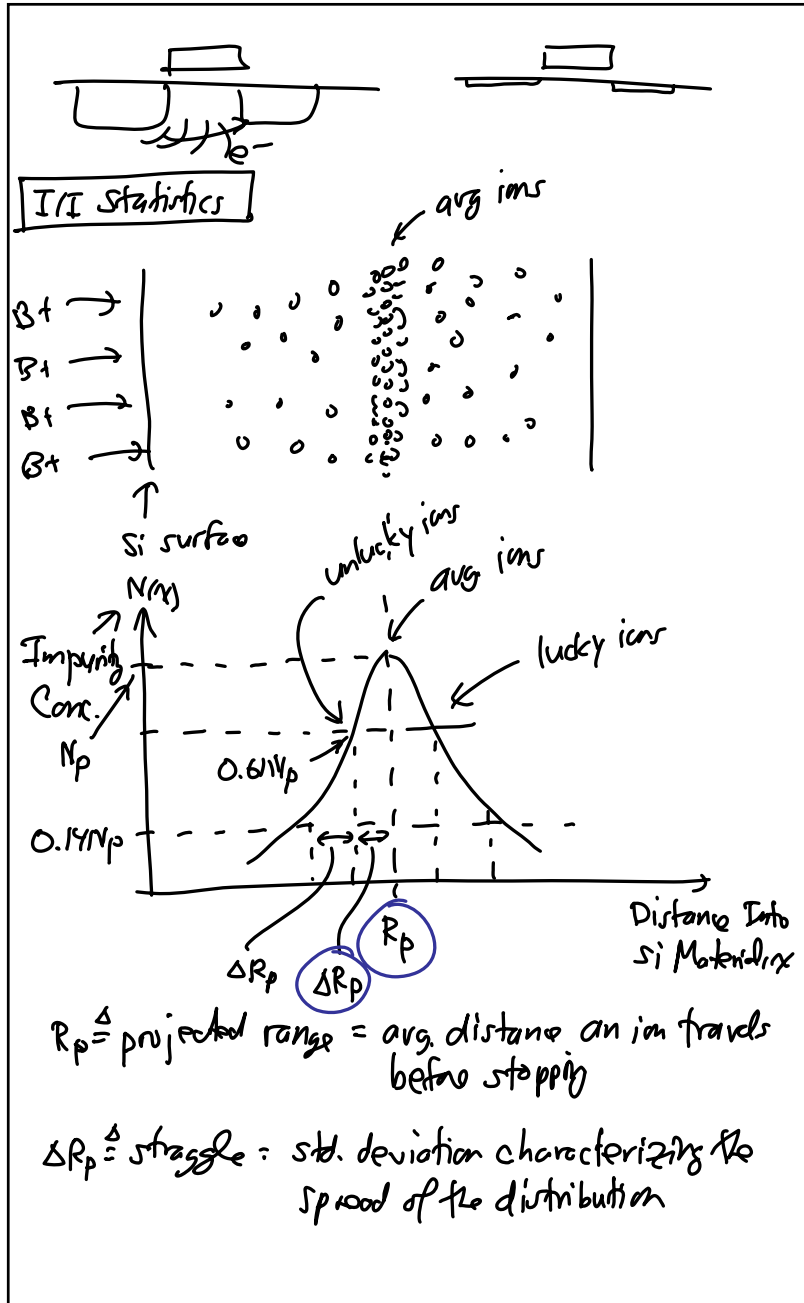 e-
I/I Statistics
avg ions
B+
B+
B+
B+
Si surface
unlucky ions
N(x)
avg. ions
Impurity
Conc.
lucky ions
Np
0.61Np
0.14Np
Distance Into
Si Material, x
Rp
ΔRp
ΔRp
Rp ≜ projected range = avg. distance an ion travels
before stopping
ΔRp ≜ straggle = std. deviation characterizing the
spread of the distribution